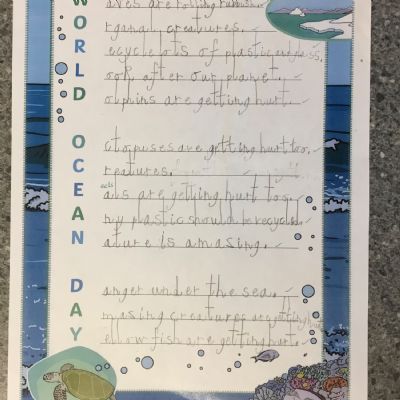 W aves are rolling
O rgans, creatures.
R ecycle lots of plastic and glass.
L ook after our planet.
D olphins are getting hurt.
O ctopuses are getting hurt too.
C reatures.
E eals are getting hurt too.
A ny plastic should be recycled
N ature is amasing.
D anger under the sea.
A masing creatures are getting hurt
Y ellow fish are getting hurt.